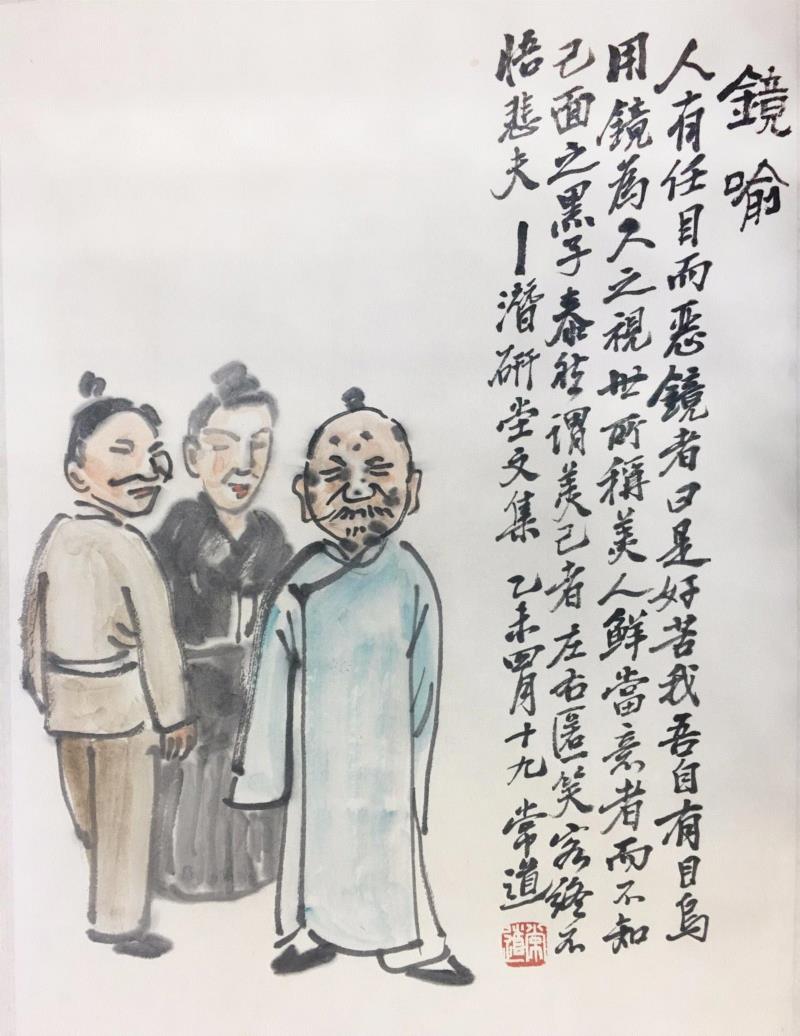 鏡喻
人有任目而惡鏡者曰是好苦我吾自有目烏
用鏡為久之視世所稱美人鮮當意者而不知
己面之黑子泰然謂美己者左右匿笑客終不
悟悲夫 — 潛研堂文集 乙未四月十九 常道
常道